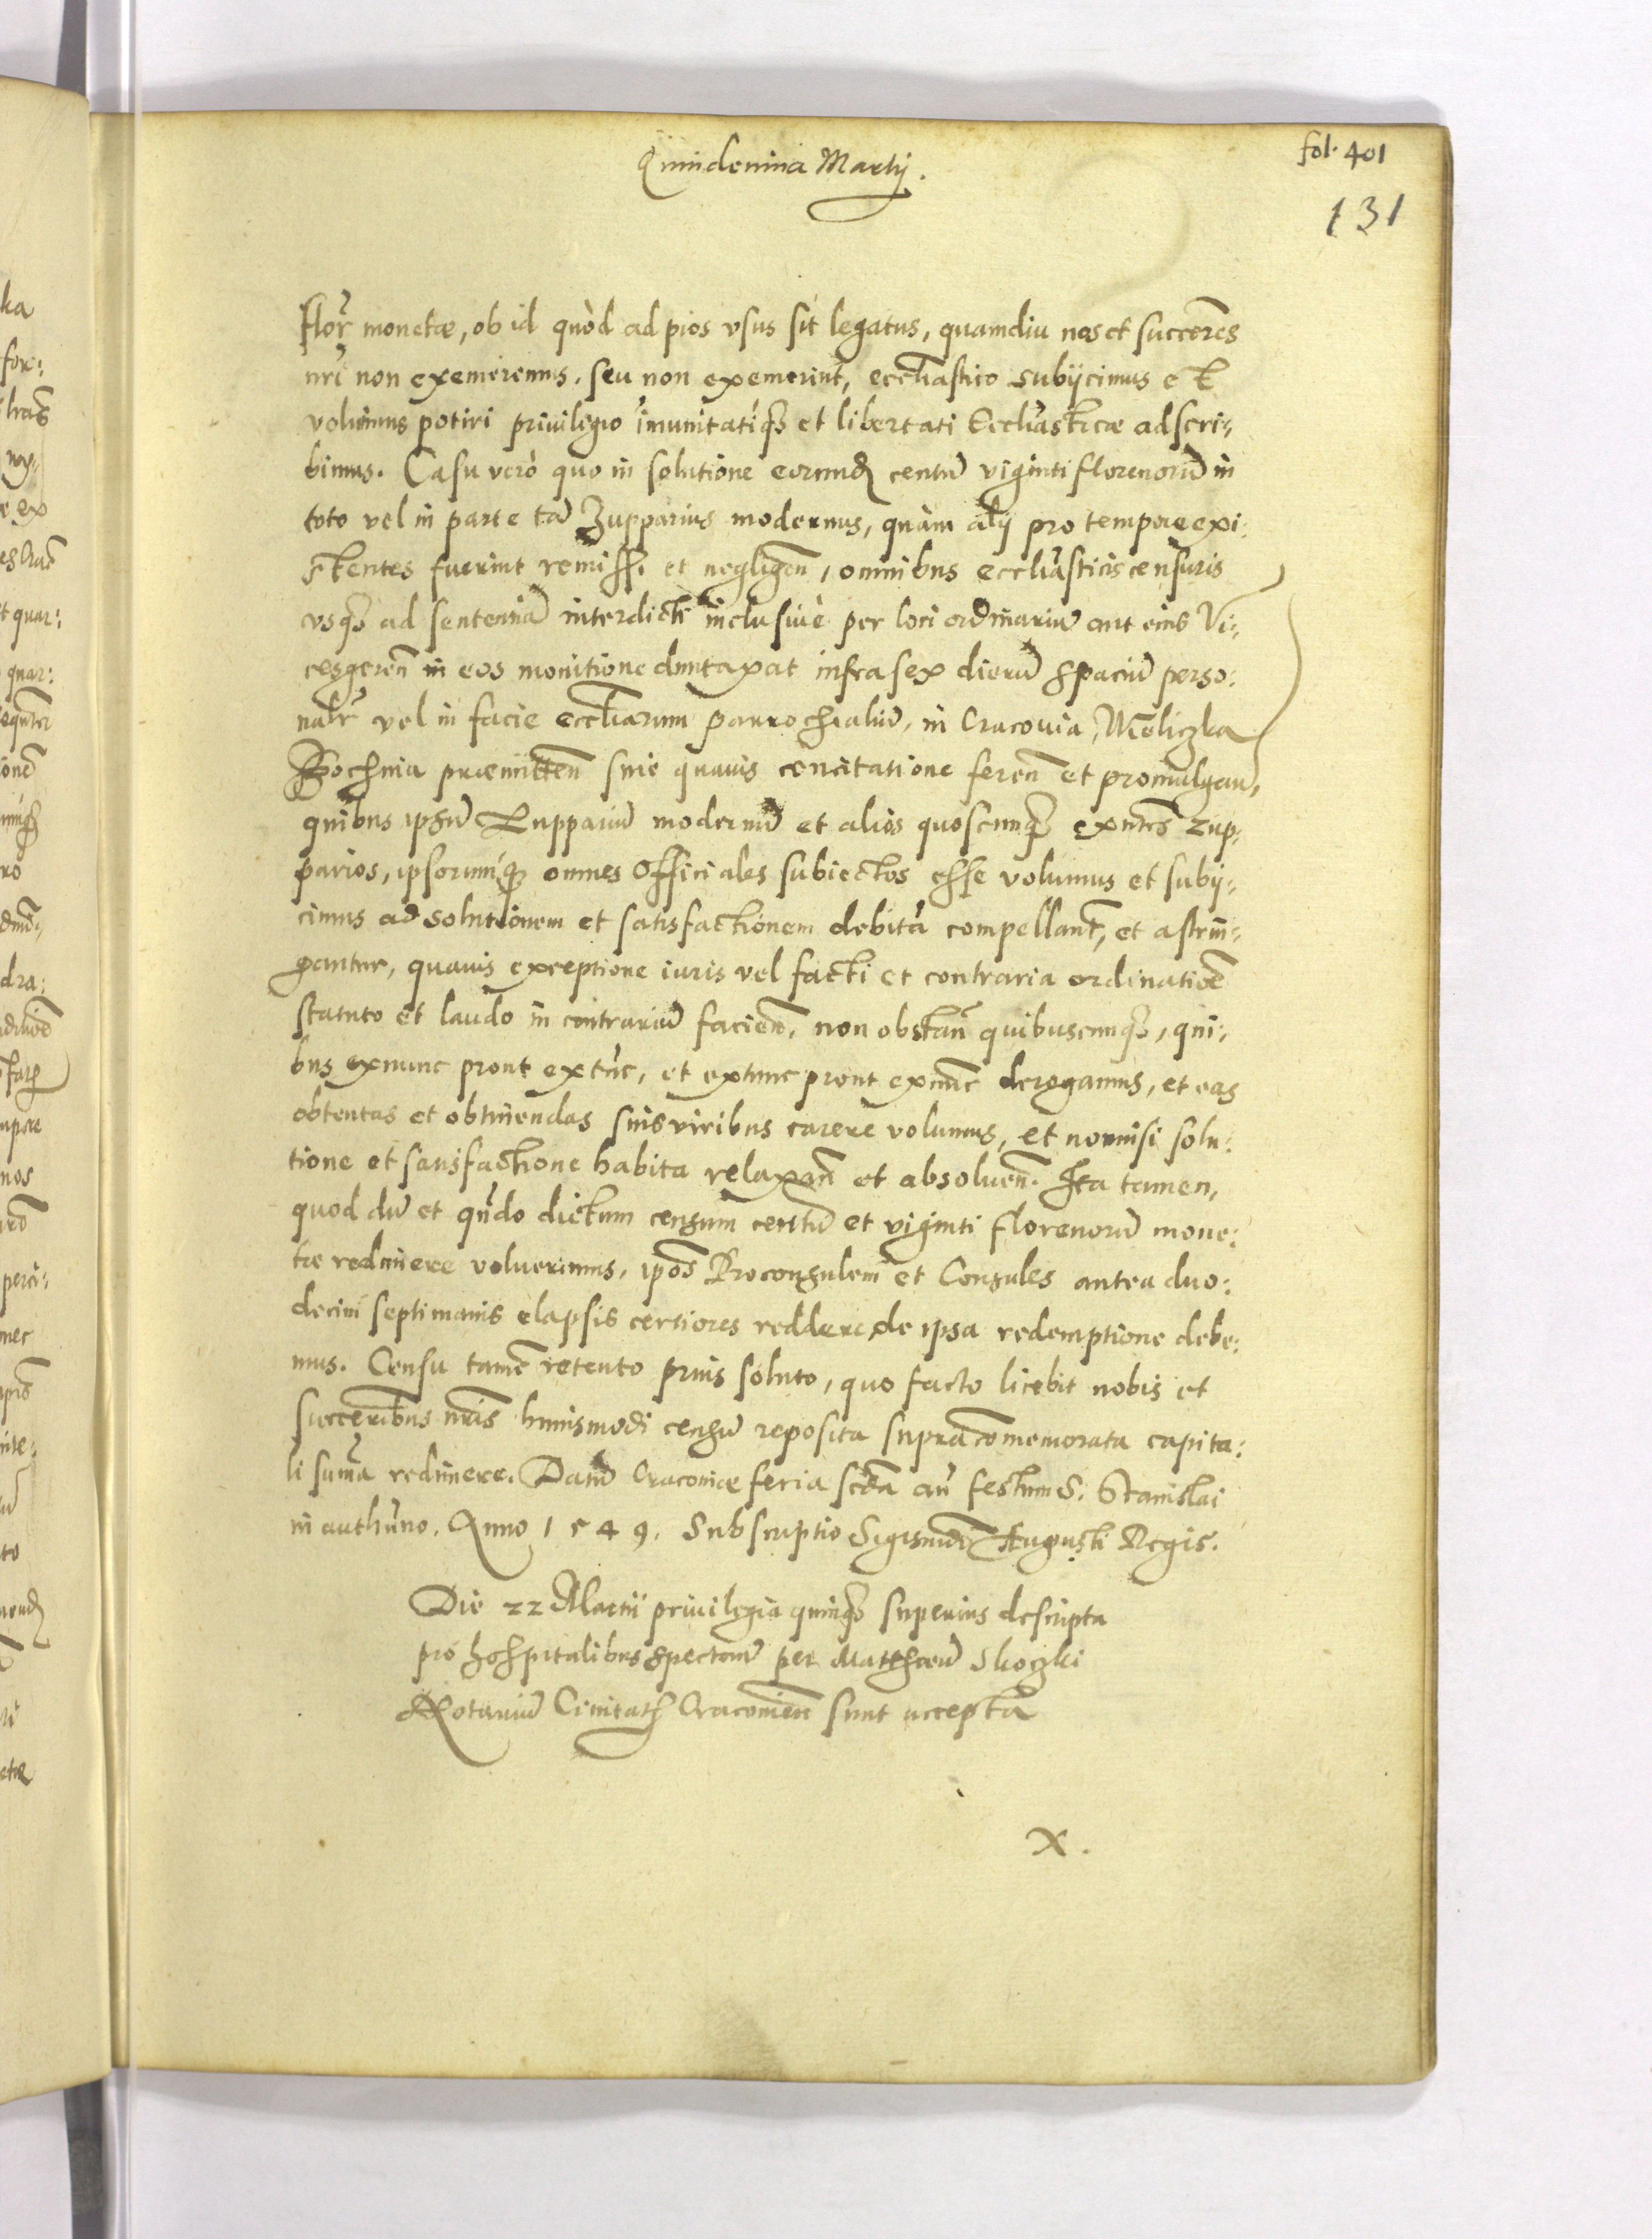 Quindenna Martij.
fol. 401
131
Flor̃ monetæ, ob id quòd ad pios vsus sit legatus, quamdiu nos et succeres̃
nr̃i non exemerimus, seu non exemerint, eccl̃iastico subijcimus et
volumus potiri priuilegio im̃unitatiq́ʒ et libertati Eccl̃iasticæ adscri-
bimus. Casu verò quo in solutione eorundẽ centũ viginti florenorũ in
toto vel in parte tã Zupparius modernus, quàm alij pro tempore exi-
stentes fuerint remissi et negligeñ, omnibus eccl̃iasticis censuris
vsqʒ ad sententiã interdicti inclusiuè per loci ordinariũ aut eius Vi-
cesgereñ in eos monitione duntaxat infra sex dierũ spaciũ perso:
nalr̃ vel in facie eccl̃iarum parrochialiũ, in Cracouia, Weliczka
Bochnia præmitteñ sine quauis concitatione fereñ et promulgan,
quibus ipsũ Zuppariũ modernũ et alios quoscunqʒ exñtes Zup-
parios, ipsorumq́ʒ omnes Officiales subiectos esse volumus et subij-
cimus ad solutionem et satisfactionem debitã compellant̃, et astrin-
gantur, quauis exceptione iuris vel facti et contraria ordinatiõe
statuto et laudo in contrariũ facieñ, non obstañ quibuscunqʒ, qui-
bus exnunc prout extũc, et extunc prout exnũc derogamus, et eas
obtentas et obtinendas suis viribus carere volumus, et nonnisi solu:
tione et satisfactione habita relaxañ et absolueñ. Ita tamen,
quod dũ et qñdo dictum censum centũ et viginti florenorũ mone:
tæ redimere voluerimus, ip̃os Proconsulem et Consules antea duo:
decim septimanis elapsis certiores reddere de ipsa redemptione debe:
mus. Censu tamẽ retento prius soluto, quo facto licebit nobis et
succeribus̃ nr̃is huiusmodi censũ reposita supracom̃emorata capita:
li sum̃a redimere. Datũ Cracouiæ feria scđa añ festum S. Stanislai
in authũno. Anno 1549. Subscriptio Sigismũdi Augusti Regis.
Die 22 Martii priuilegia quinqʒ superius descripta
pro hospitalibus spectañ per Matthæũ Skoczki
Notariũ Ciuitatis Cracouieñ sunt accepta
X.